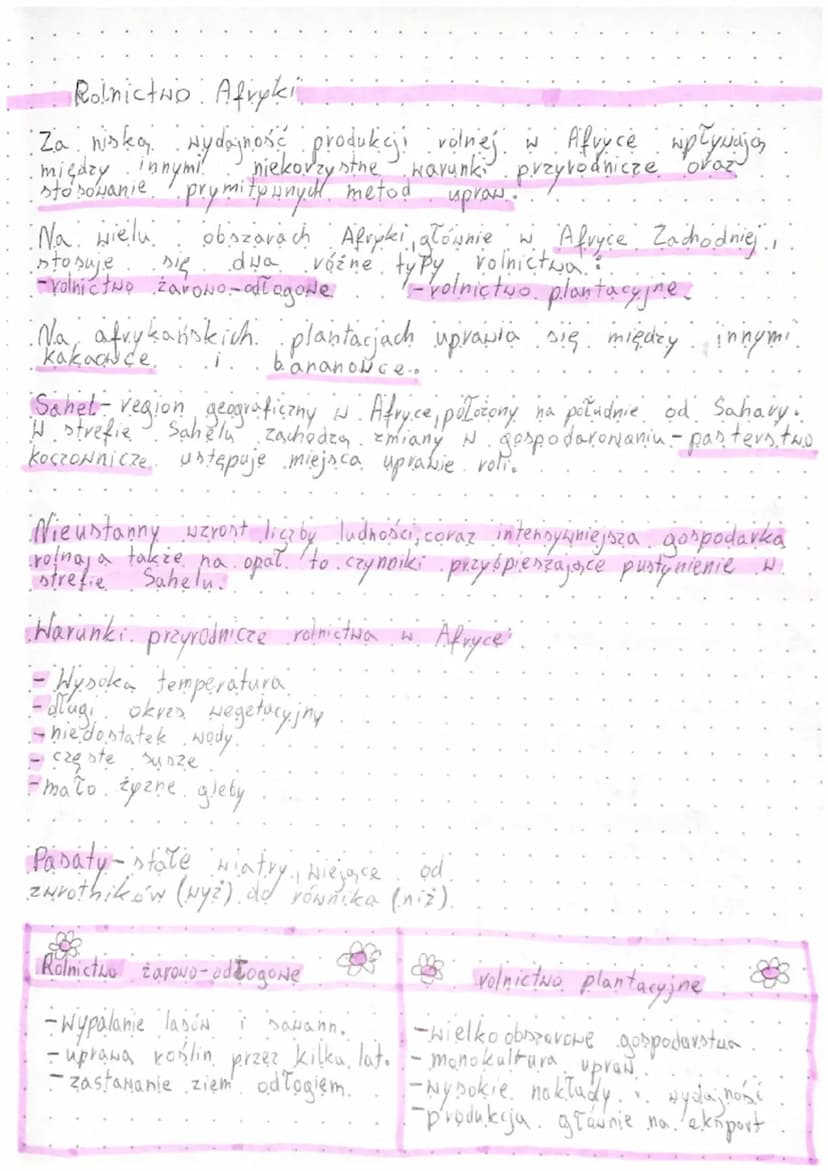 Rolnictwo Afryki
Za niską wydajność produkcji rolnej w Afryce wpływają
między innymi niekorzystne warunki przyrodnicze oraz
stosowanie prymitywnych metod upraw.
Na wielu obszarach Afryki, głównie w Afryce Zachodniej,
stosuje się dwa różne typy rolnictwa:
-rolnictwo żarowo-odłogowe -rolnictwo plantacyjne.
Na afrykańskich plantacjach uprawia się między innymi
kakaowce i bananowce.
Sahel- region geograficzny w Afryce, położony na południe od Sahary.
W strefie Sahelu zachodzą zmiany w gospodarowaniu - pasterstwo
koczownicze ustępuje miejsca uprawie roli.
Nieustanny wzrost liczby ludności, coraz intensywniejsza gospodarka
rolna, a także na opał to czynniki przyśpieszające pustynienie w
strefie Sahelu.
Warunki przyrodnicze rolnictwa w Afryce
- Wysoka temperatura
- długi okres wegetacyjny
- niedostatek wody
- częste susze
- mało żyzne gleby
Pasaty - stałe wiatry, wiejące od
zwrotników (wyż) do równika (niż).
Rolnictwo żarowo-odłogowe
- Wypalanie lasów i sawann.
- uprawa roślin przez kilka lat.
- zastawanie ziem odłogiem.
rolnictwo plantacyjne
- wielkoobszarowe gospodarstwa
- monokultura upraw
- wysokie nakłady i wydajność
- produkcja głównie na eksport